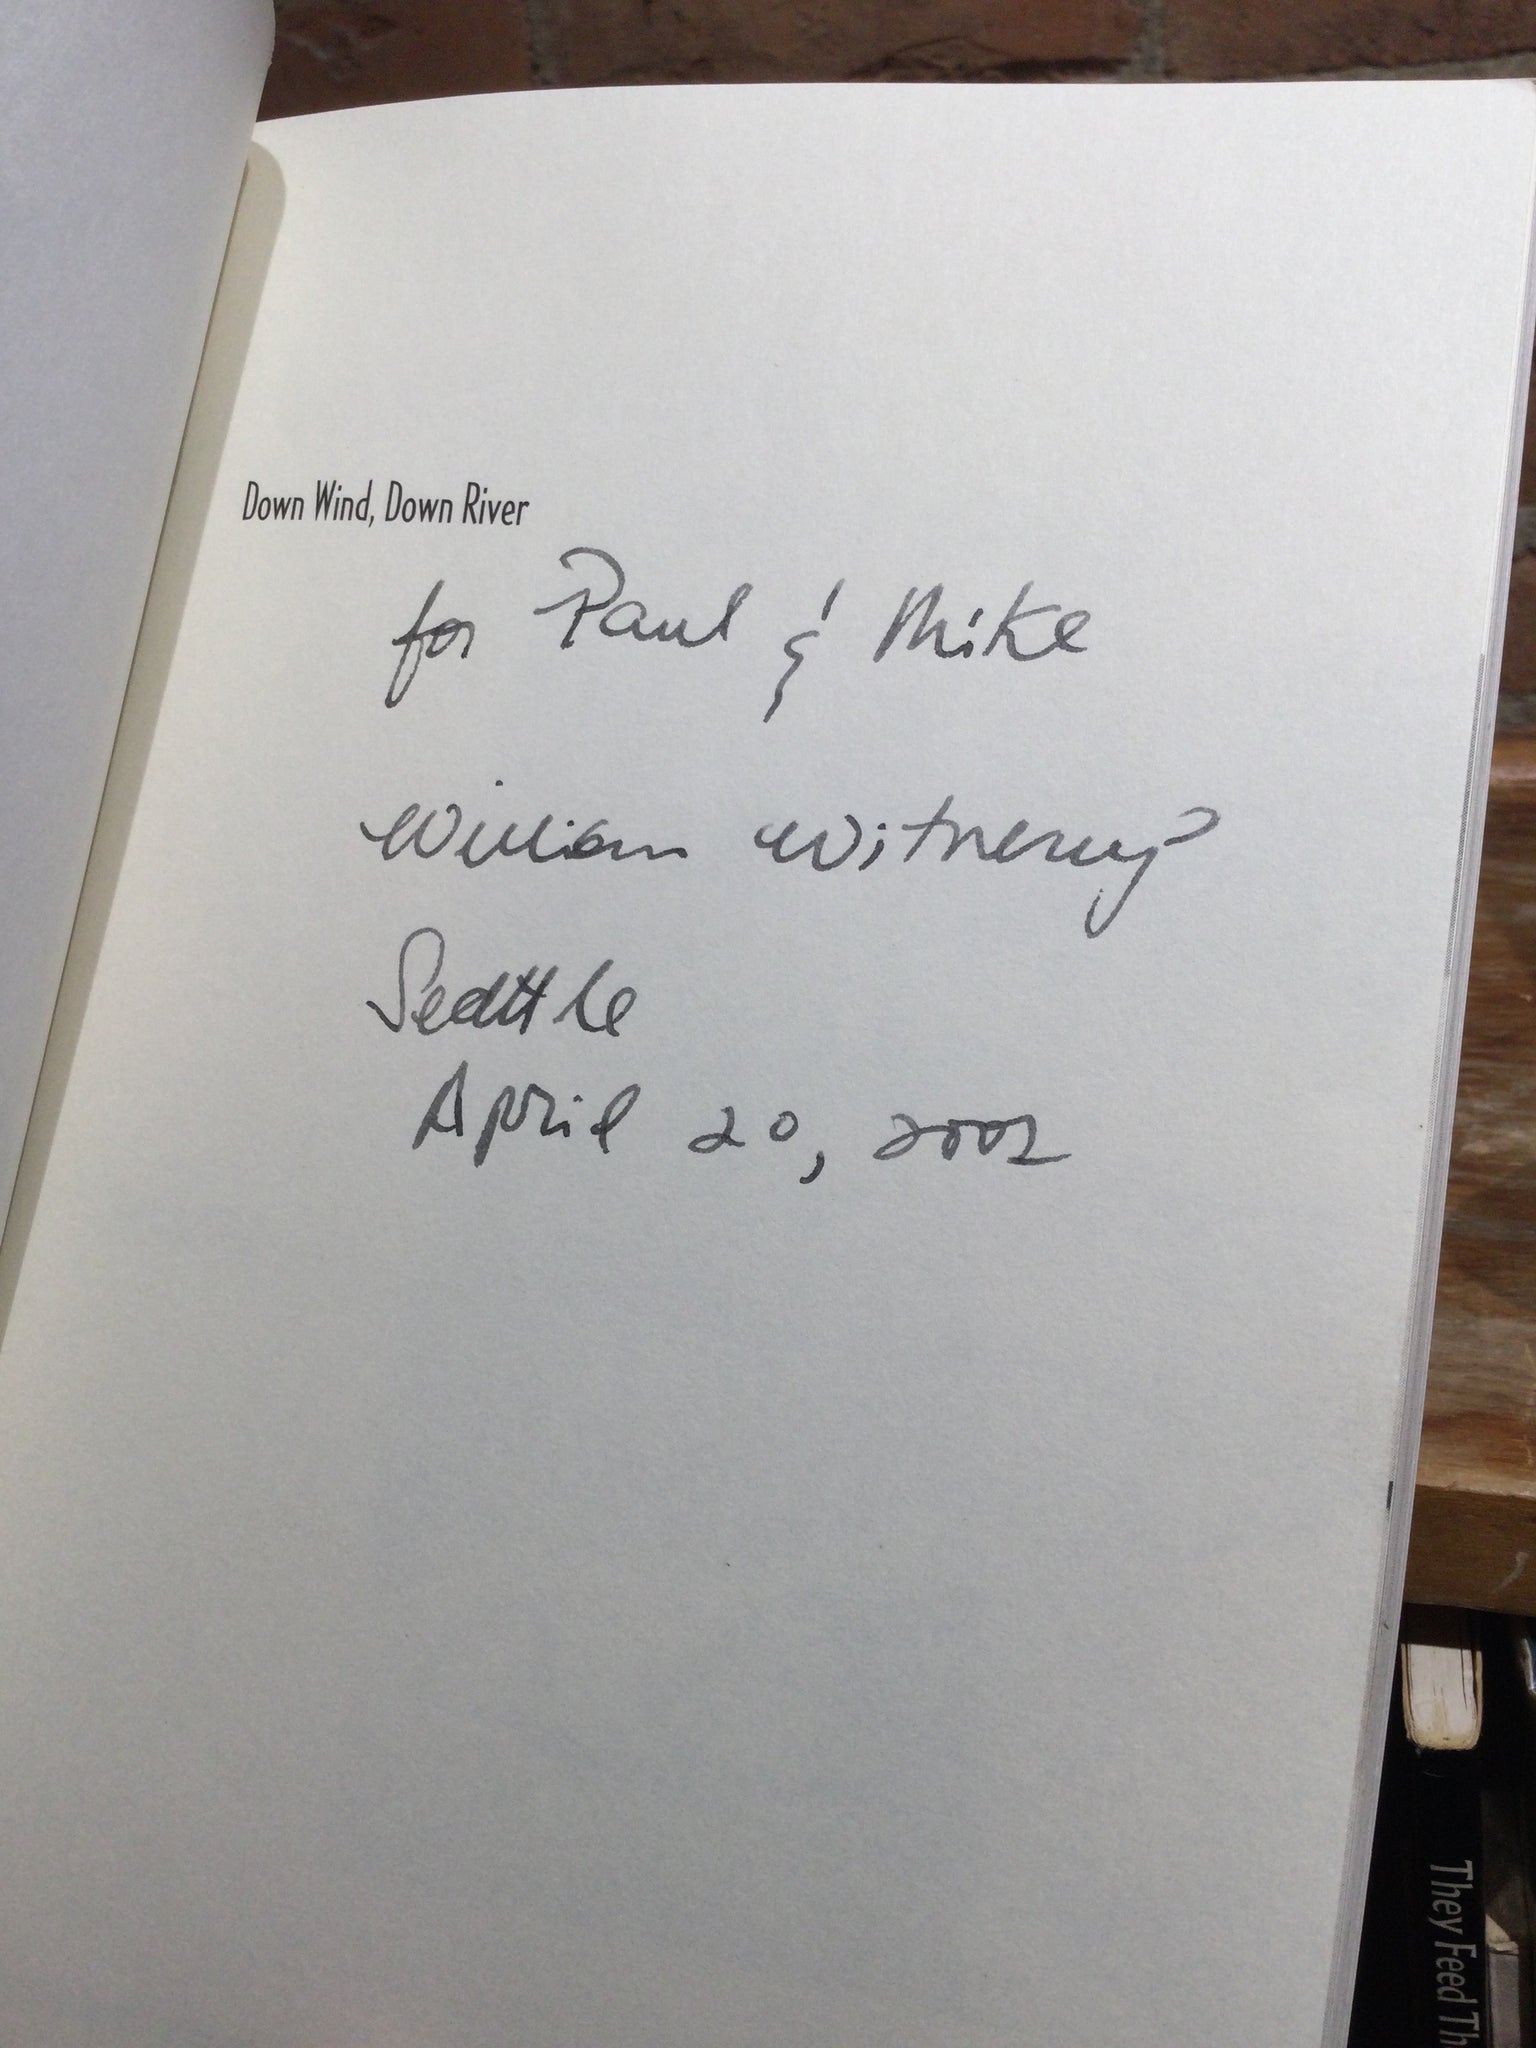 Down Wind, Down River
for Paul & Mike
William Witherup
Seattle
April 20, 2002
They Feed Th